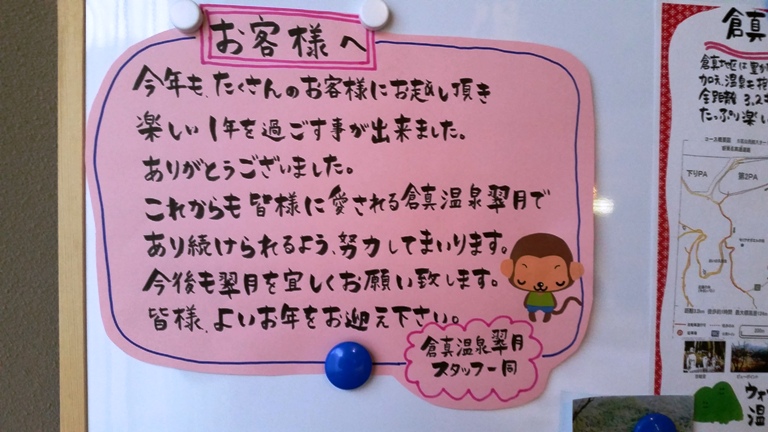 お客様へ
今年も、たくさんのお客様にお越し頂き
楽しい1年を過ごす事が出来ました。
ありがとうございました。
これからも皆様に愛される倉真温泉翠月で
あり続けられるよう、努力してまいります。
今後も翠月を宜しくお願い致します。
皆様、よいお年をお迎え下さい。
倉真温泉翠月
スタッフ一同
倉真
倉真地区は
加え、温泉も
全距離 3.2
たっぷり楽し
下りPA
第2PA
ウォ
温